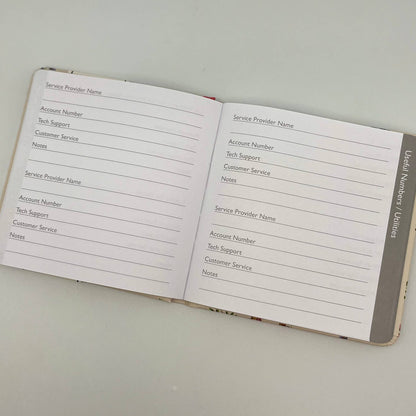 Service Provider Name
Account Number
Tech Support
Customer Service
Notes
Service Provider Name
Account Number
Tech Support
Customer Service
Notes
Service Provider Name
Account Number
Tech Support
Customer Service
Notes
Service Provider Name
Account Number
Tech Support
Customer Service
Notes
Useful Numbers / Utilities